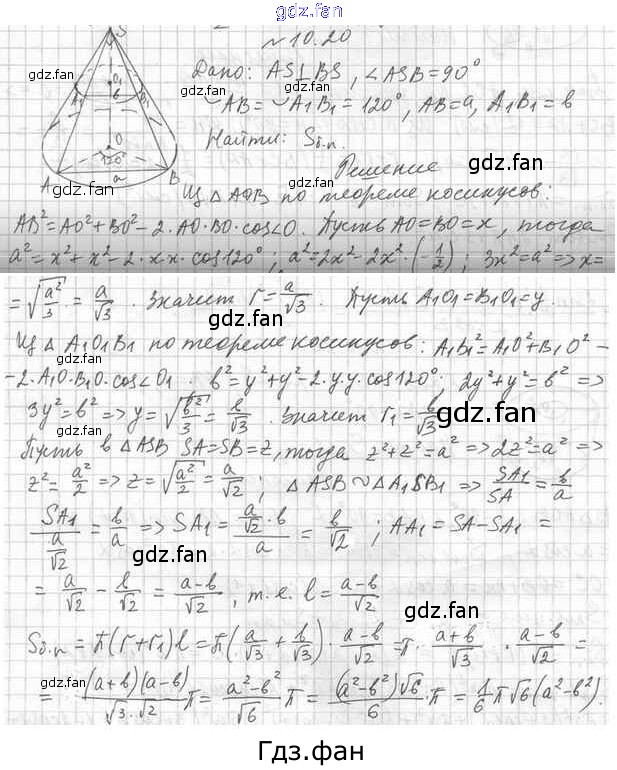 gdz.fan
№10.20
gdz.fan
Дано: AS⊥BS, ∠ASB=90°
◡AB=◡A₁B₁=120°, AB=a, A₁B₁=b
gdz.fan
Найти: Sб.п.
S O₁ b A₁ B₁ O 120° A a B
Решение
gdz.fan
gdz.fan
Из △AOB по теореме косинусов:
AB²=AO²+BO²-2·AO·BO·cos∠O. Пусть AO=BO=x, тогда
a²=x²+x²-2·x·x·cos120°; a²=2x²-2x²·(-1/2); 3x²=a²=>x=
=√(a²/3)=a/√3. Значит r=a/√3. Пусть A₁O₁=B₁O₁=y.
gdz.fan
Из △A₁O₁B₁ по теореме косинусов: A₁B₁²=A₁O²+B₁O²-
-2·A₁O·B₁O·cos∠O₁. b²=y²+y²-2·y·y·cos120°; 2y²+y²=b²=>
gdz.fan
3y²=b²=>y=√(b²/3)=b/√3. Значит r₁=b/√3.
gdz.fan
Пусть в △ASB SA=SB=z, тогда z²+z²=a²=>2z²=a²=>
z²=a²/2=>z=√(a²/2)=a/√2; △ASB~△A₁SB₁=>SA₁/SA=b/a
gdz.fan
SA₁/(a/√2)=b/a=>SA₁=(a/√2·b)/a=b/√2; AA₁=SA-SA₁=
gdz.fan
=a/√2-b/√2=(a-b)/√2, т.е. l=(a-b)/√2
gdz.fan
Sб.п=π(r+r₁)l=π(a/√3+b/√3)·(a-b)/√2=π·(a+b)/√3·(a-b)/√2=
gdz.fan
gdz.fan
=(a+b)(a-b)/(√3·√2)π=(a²-b²)/√6 π=(a²-b²)√6/6·π=1/6π√6(a²-b²).
Гдз.фан